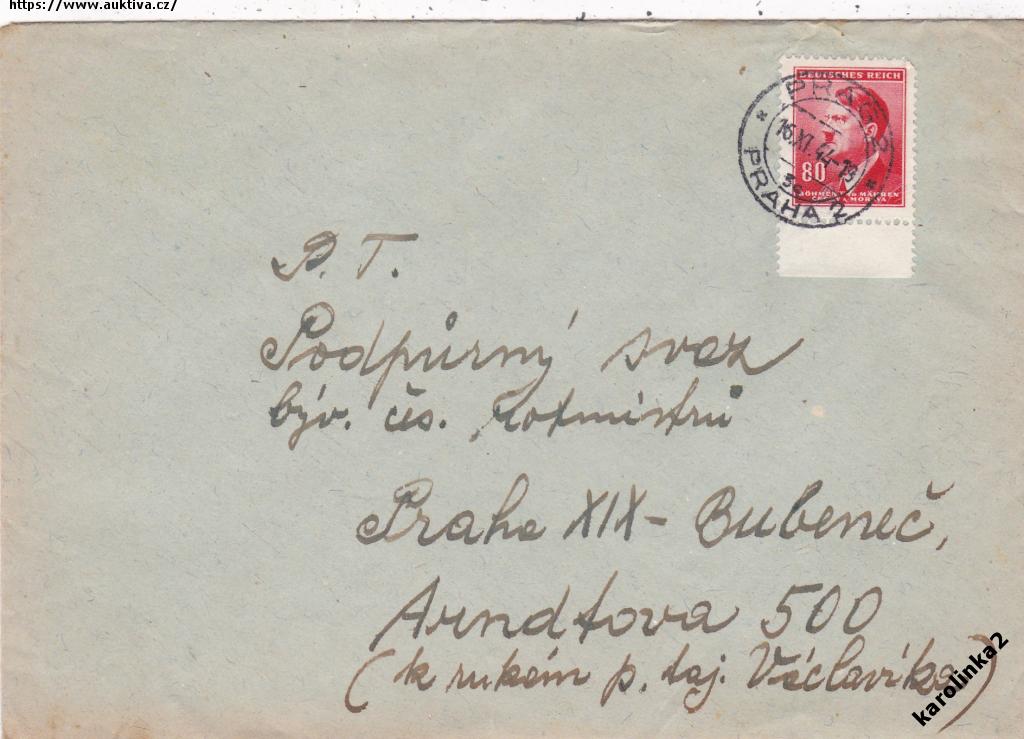 https://www.auktiva.cz/
DEUTSCHES REICH
80
BÖHMEN UND MÄHREN
MORAVA
PRAG 2
16.XI.44-18
PRAHA 2
P. T.
Podpůrný svaz
býv. čs. rotmistrů
Praha XIX - Bubeneč,
Arndtova 500
(k rukám p. taj. Václavíka)
karolinka2